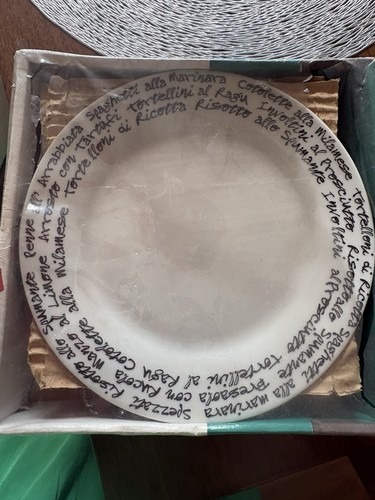 Spumante Penne all'Arrabbiata Spaghetti alla Marinara Cotolette alla Milanese Tortelloni di Ricotta
al Limone Arrosto con Tartufi Tortellini al Ragu Involtini al Prosciutto Risotto allo Spumante
Cotolette alla Milanese Tortelloni di Ricotta Risotto allo Spumante Involtini al Prosciutto Tortellini al Ragu
Spaghetti alla marinara Spezzati Risotto allo
Bresaola con Rucola Manzo